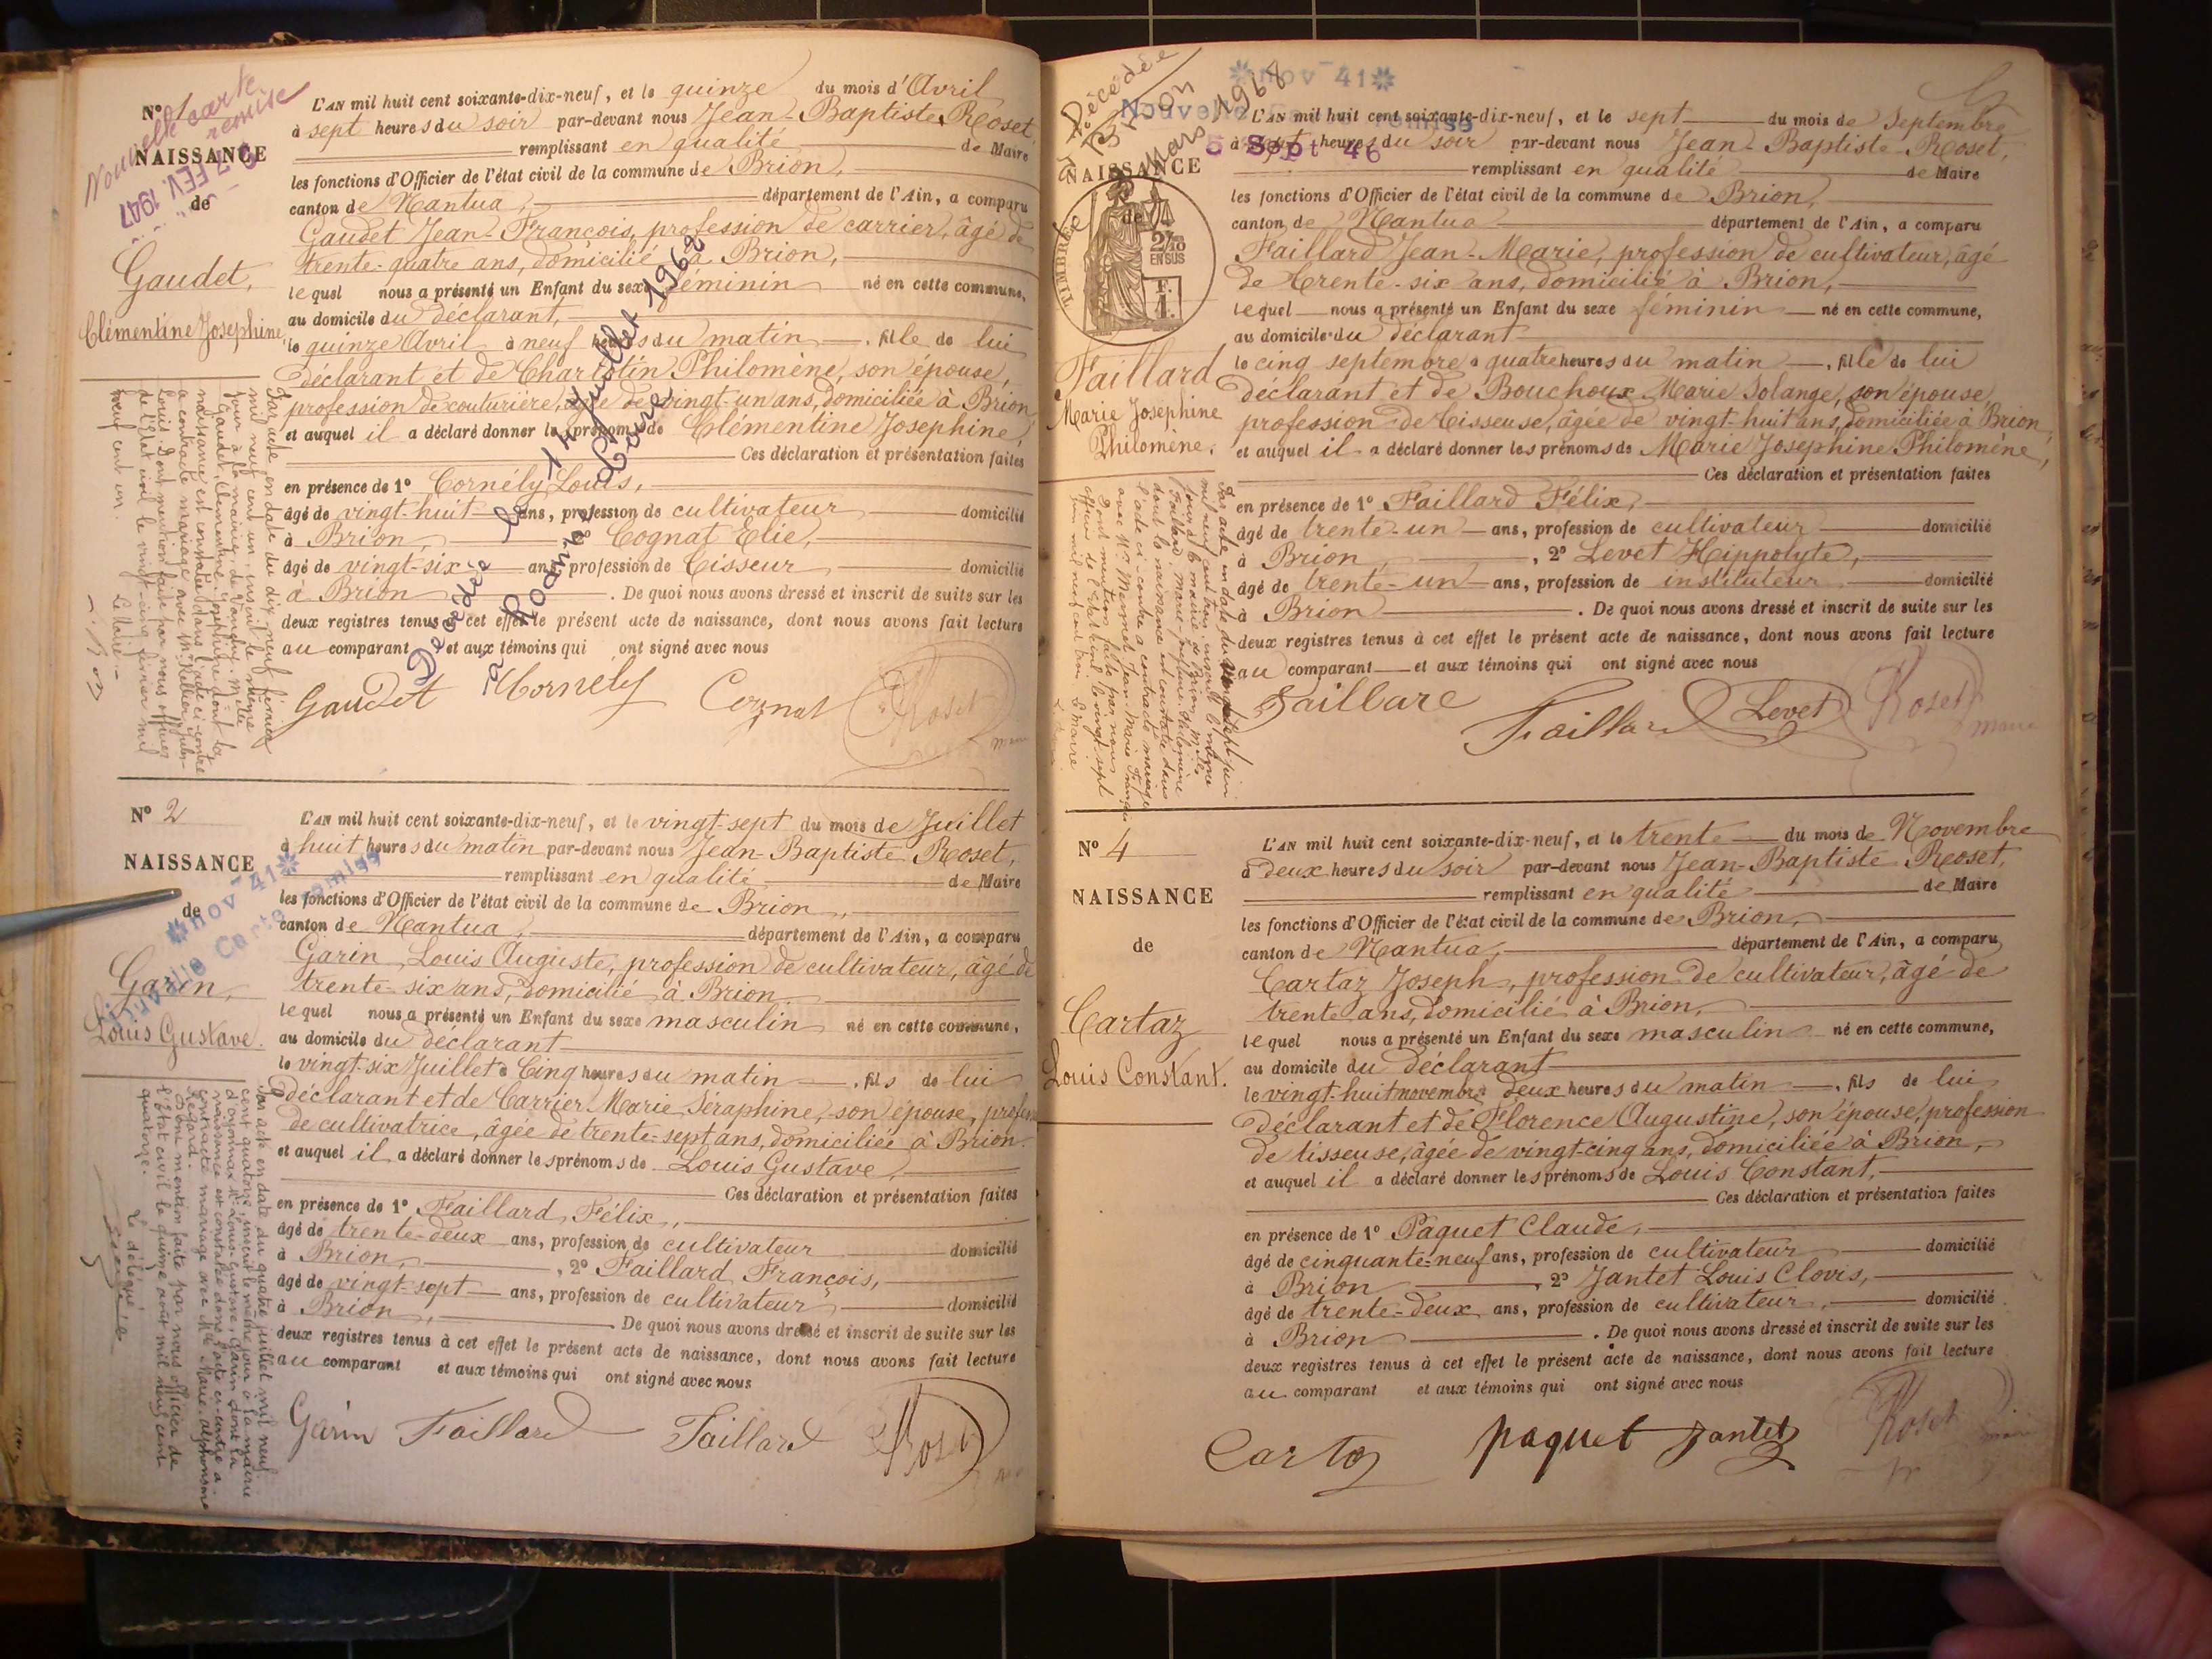 Nº 1
Nouvelle carte
remise
7 FEV. 1947
NAISSANCE
de
Gaudet,
Clémentine Josephine
L'AN mil huit cent soixante-dix-neuf, et le quinze du mois d'Avril
à sept heures du soir par-devant nous Jean-Baptiste Roset,
remplissant en qualité de Maire
les fonctions d'Officier de l'état civil de la commune de Brion,
canton de Nantua, département de l'Ain, a comparu
Gaudet Jean-François, profession de carrier, âgé de
trente-quatre ans, domicilié à Brion,
lequel nous a présenté un Enfant du sexe féminin né en cette commune,
au domicile du déclarant,
le quinze Avril à neuf heures du matin, fille de lui
déclarant et de Charlotin Philomène, son épouse,
profession de couturière, âgée de vingt-un ans, domiciliée à Brion
et auquel il a déclaré donner les prénoms de Clémentine Josephine,
Ces déclaration et présentation faites
en présence de 1º Cornély Louis,
âgé de vingt-huit ans, profession de cultivateur domicilié
à Brion, 2º Cognat Elie,
âgé de vingt-six ans, profession de tisseur domicilié
à Brion. De quoi nous avons dressé et inscrit de suite sur les
deux registres tenus à cet effet le présent acte de naissance, dont nous avons fait lecture
au comparant et aux témoins qui ont signé avec nous
Gaudet Cornély Cognat Roset
maire
Décédée le 14 Juillet 1968
à Roanne Loire
Par acte en date du dix-neuf février
mil neuf cent un, inscrit le même
jour à la mairie de
Gaudet, Clémentine Josephine dont la
naissance est constatée dans l'acte ci-contre
a contracté mariage avec Mr
Louis. Dont mention faite par nous officier
de l'Etat civil le vingt-cinq février mil
neuf cent un. Le Maire
Nº 2
NAISSANCE
de
nov 41
Nouvelle Carte remise
Garin,
Louis Gustave.
L'AN mil huit cent soixante-dix-neuf, et le vingt-sept du mois de Juillet
à huit heures du matin par-devant nous Jean-Baptiste Roset,
remplissant en qualité de Maire
les fonctions d'Officier de l'état civil de la commune de Brion,
canton de Nantua, département de l'Ain, a comparu
Garin Louis Auguste, profession de cultivateur, âgé de
trente-six ans, domicilié à Brion.
lequel nous a présenté un Enfant du sexe masculin né en cette commune,
au domicile du déclarant
le vingt-six Juillet à Cinq heures du matin, fils de lui
déclarant et de Carrier Marie Séraphine, son épouse, profession
de cultivatrice, âgée de trente-sept ans, domiciliée à Brion.
et auquel il a déclaré donner les prénoms de Louis Gustave,
Ces déclaration et présentation faites
en présence de 1º Faillard, Félix,
âgé de trente-deux ans, profession de cultivateur domicilié
à Brion, 2º Faillard François,
âgé de vingt-sept ans, profession de cultivateur domicilié
à Brion, De quoi nous avons dressé et inscrit de suite sur les
deux registres tenus à cet effet le présent acte de naissance, dont nous avons fait lecture
au comparant et aux témoins qui ont signé avec nous
Garin Faillard Faillard Roset
Par acte en date du quatre juillet mil neuf
cent quatorze, inscrit le même jour à la mairie
d'oyonnax Mr Louis-Gustave Garin dont la
naissance est constatée dans l'acte ci-contre a
contracté mariage avec Mlle Marie alphonsine
Dont mention faite par nous officier de
l'Etat civil le quinze août mil neuf cent
quatorze. Le délégué,
Décédée
à Brion
Mars 1968
nov 41
Nouvelle remise
5 Sept 46
NAISSANCE
de
TIMBRE
2/10 EN SUS
F. 1.
Faillard
Marie Josephine
Philomène.
L'AN mil huit cent soixante-dix-neuf, et le sept du mois de Septembre
à heures du soir par-devant nous Jean-Baptiste Roset,
remplissant en qualité de Maire
les fonctions d'Officier de l'état civil de la commune de Brion,
canton de Nantua département de l'Ain, a comparu
Faillard Jean-Marie, profession de cultivateur, âgé
de trente-six ans, domicilié à Brion,
lequel nous a présenté un Enfant du sexe féminin né en cette commune,
au domicile du déclarant
le cinq septembre à quatre heures du matin, fille de lui
déclarant et de Bouchoux Marie Solange, son épouse,
profession de tisseuse, âgée de vingt-huit ans, domiciliée à Brion,
et auquel il a déclaré donner les prénoms de Marie Josephine Philomène,
Ces déclaration et présentation faites
en présence de 1º Faillard Félix,
âgé de trente-un ans, profession de cultivateur domicilié
à Brion, 2º Levet Hippolyte,
âgé de trente-un ans, profession de instituteur domicilié
à Brion. De quoi nous avons dressé et inscrit de suite sur les
deux registres tenus à cet effet le présent acte de naissance, dont nous avons fait lecture
au comparant et aux témoins qui ont signé avec nous
Faillard Faillard Levet Roset
maire
Par acte en date du vingt-sept juin
mil neuf cent trois, inscrit le même
jour à la mairie de Brion, Mlle
Faillard, Marie Josephine Philomène
dont la naissance est constatée dans
l'acte ci-contre a contracté mariage
avec Mr Mermet Jean-Marie François
Dont mention faite par nous
officier de l'Etat civil le vingt-sept
juin mil neuf cent trois Le Maire
Nº 4
NAISSANCE
de
Cartaz
Louis Constant.
L'AN mil huit cent soixante-dix-neuf, et le trente du mois de Novembre
à deux heures du soir par-devant nous Jean-Baptiste Roset,
remplissant en qualité de Maire
les fonctions d'Officier de l'état civil de la commune de Brion,
canton de Nantua, département de l'Ain, a comparu
Cartaz Joseph, profession de cultivateur, âgé de
trente ans, domicilié à Brion,
lequel nous a présenté un Enfant du sexe masculin né en cette commune,
au domicile du déclarant
le vingt-huit novembre deux heures du matin, fils de lui
déclarant et de Florence Augustine, son épouse, profession
de tisseuse, âgée de vingt-cinq ans, domiciliée à Brion,
et auquel il a déclaré donner les prénoms de Louis Constant,
Ces déclaration et présentation faites
en présence de 1º Paquet Claude,
âgé de cinquante-neuf ans, profession de cultivateur domicilié
à Brion 2º Jantet Louis Clovis,
âgé de trente-deux ans, profession de cultivateur, domicilié
à Brion. De quoi nous avons dressé et inscrit de suite sur les
deux registres tenus à cet effet le présent acte de naissance, dont nous avons fait lecture
au comparant et aux témoins qui ont signé avec nous
Cartaz paquet Jantet Roset
maire